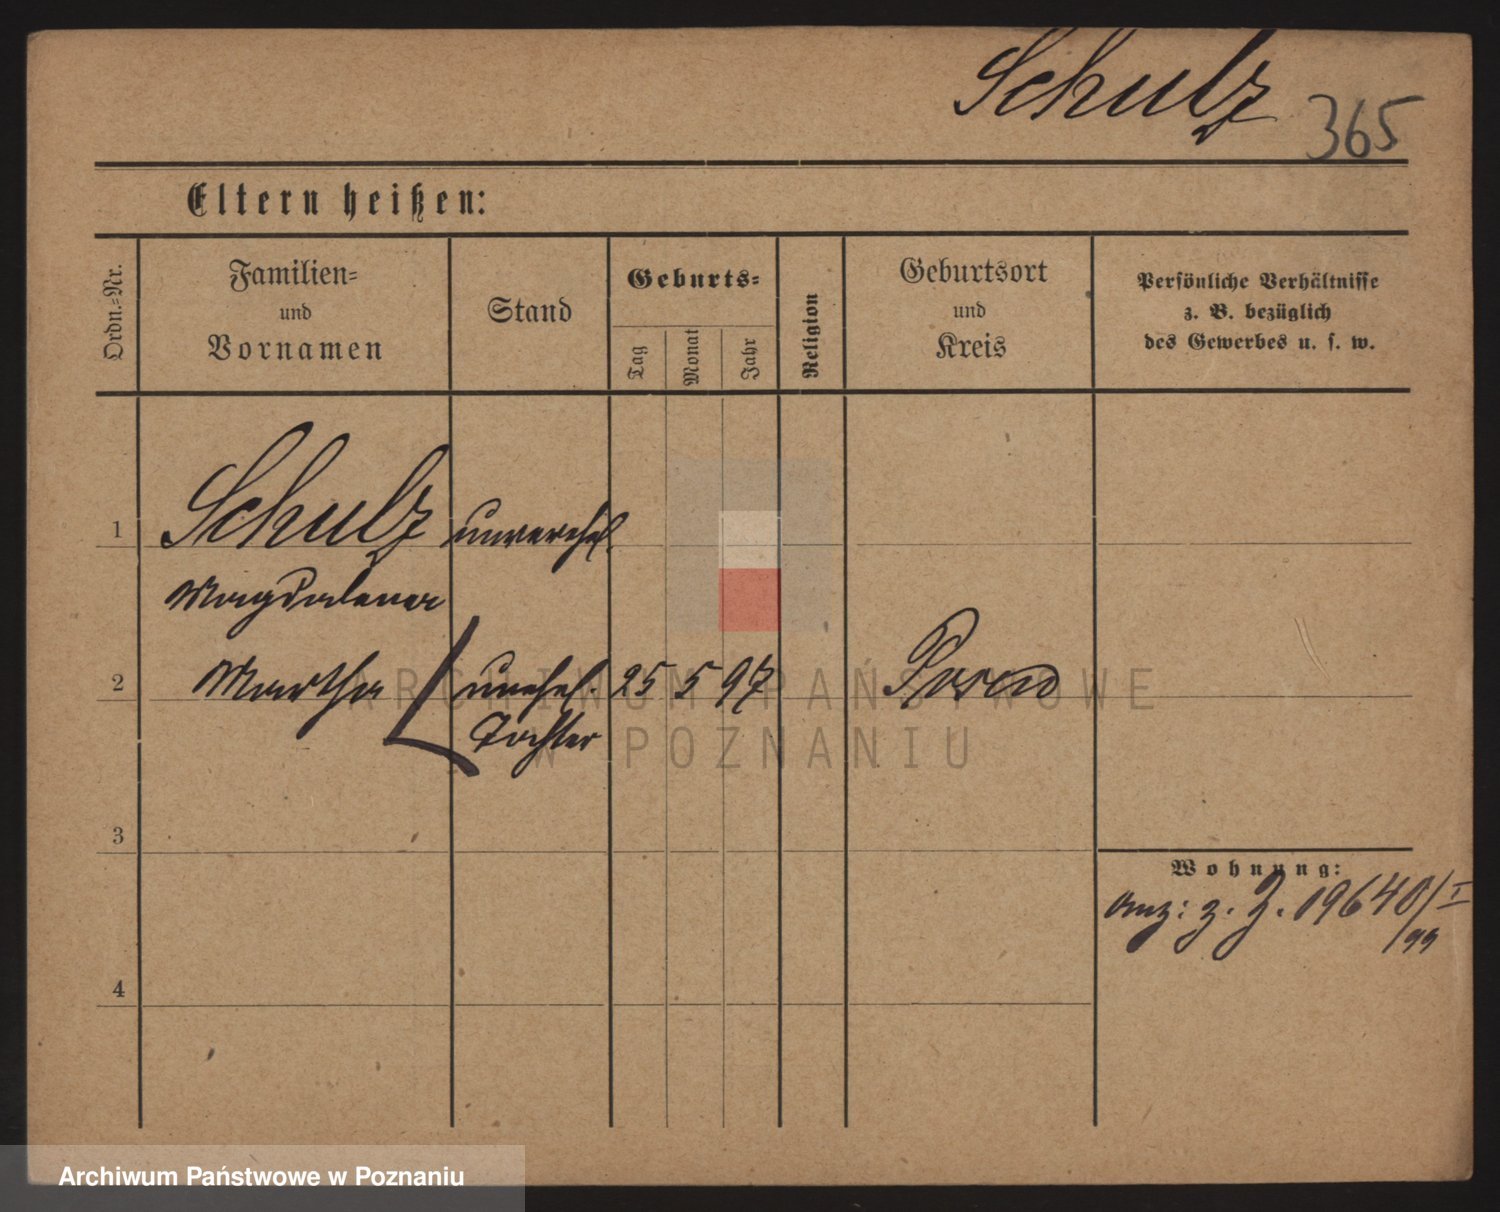 Schulz 365
Eltern heißen:
Ordn.=Nr.
Familien=
und
Vornamen
Stand
Geburts=
Tag
Monat
Jahr
Religion
Geburtsort
und
Kreis
Persönliche Verhältnisse
z. B. bezüglich
des Gewerbes u. s. w.
1 Schulz unverehel.
Magdalena
2 Martha unehel. 25 5 97 Posen
Tochter
3
4
Wohnung:
Anz: z. J. 19640/I
/99
ARCHIWUM PAŃSTWOWE
W POZNANIU
Archiwum Państwowe w Poznaniu